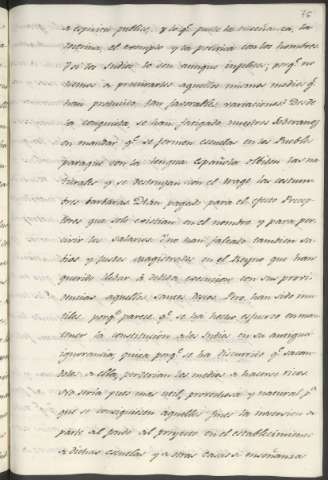 76
la opinion publica, y lo q.e puede la enseñanza, la
doctrina, el exemplo y la policia con los hombres
Los Indios lo son aunque infelices; porq.e no
hemos a procurarles aquellos mismos medios q.e
han producido tan favorables variaciones? Desde
la conquista se han fatigado nuestros Soberanos
en mandar q.e se formen escuelas en los Pueblos
paraque con la lengua Española olviden los na-
turales y se destruyan con el trage las costum-
bres barbaras. Dean pagado para el efecto Precep-
tores que solo existian en el nombre y para per-
civir los salarios. Y no han faltado tambien sa-
bios y justos magistrados en el Reyno que han
querido llebar à debida execucion con sus provi-
dencias aquellos santos deseos. Pero han sido inu-
tiles porq.e parece q.e se ha hecho esfuerzo en man-
tener la constitucion a los Indios en su antigua
ignorancia, quiza porq.e se ha discurrido q.e sacan-
dolos a ella, perderian los medios a hacerse ricos
seria y es mas util, provechosa y natural p.a
que se consiguiesen aquellos fines la inversion a
parte al fondo al proyecto en el establecimiento
a dichas escuelas y a otras casas a enseñanza